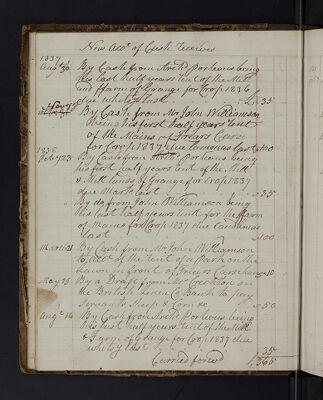 New Accot of Cash Received
1837
Augt 30 By Cash from Archd Porteous being
his last half years rent of the Mill
and ffarm of Grange for Crop 1836
due whity last £ 35
By Cash from Mr John Williamson
being his first half years rent
of the Mains of Friars Carse
for Crop 1837 due Candmas last 100
1838
Feby 23 By Cash from Archd Porteous being
his first half years rent of the Mill
& Mill lands of Grange for Crop 1837
due Marts last 35
By do from John Williamson being
his last half years rent for the ffarm
of Mains for Crop 1837 due Candmas
last 100
March 21 By Cash from Mr John Williamson
to accot of the rent of a Park on the
Lawn in front of Friars Carse house 10
May 25 By a Draft from Mr
the British Linen Co Bank to pay
servants Sheep & Corn &c 50
Augt 14 By Cash from Archd Porteous being
his last half years rent of the Mill
& Farm of Grange for Crop 1837 due
whity last 35
Carried forwd £365